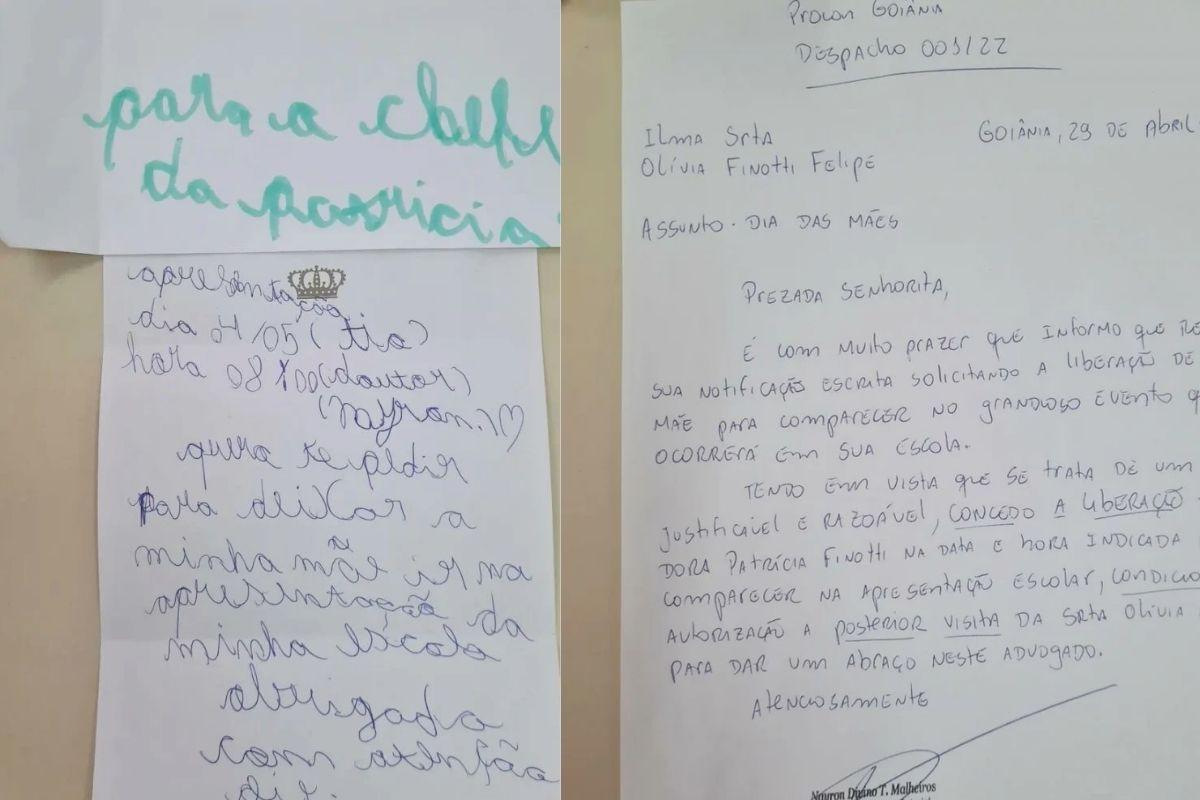 para a chefe
da patricia
apresentação
dia 04/05 (tia)
hora 08:00 (doutor)
(Nayron.)♡
queria te pedir
para deixar a
minha mãe ir na
apresentação da
minha escola
obrigada
com atenção
Procon Goiânia
Despacho 001/22
Ilma Srta
Olívia Finotti Felipe
Goiânia, 29 de Abril
Assunto. Dia das Mães
Prezada Senhorita,
É com muito prazer que informo que
sua notificação escrita solicitando a liberação de
mãe para comparecer no grandioso evento
ocorrerá em sua escola.
Tendo em vista que se trata de um
justificável e razoável, concedo a liberação
dora Patrícia Finotti na data e hora indicada
comparecer na apresentação escolar, condicio
autorização a posterior visita da Srta Olívia
para dar um abraço neste advogado.
Atenciosamente
Nayron Divino T. Malheiros